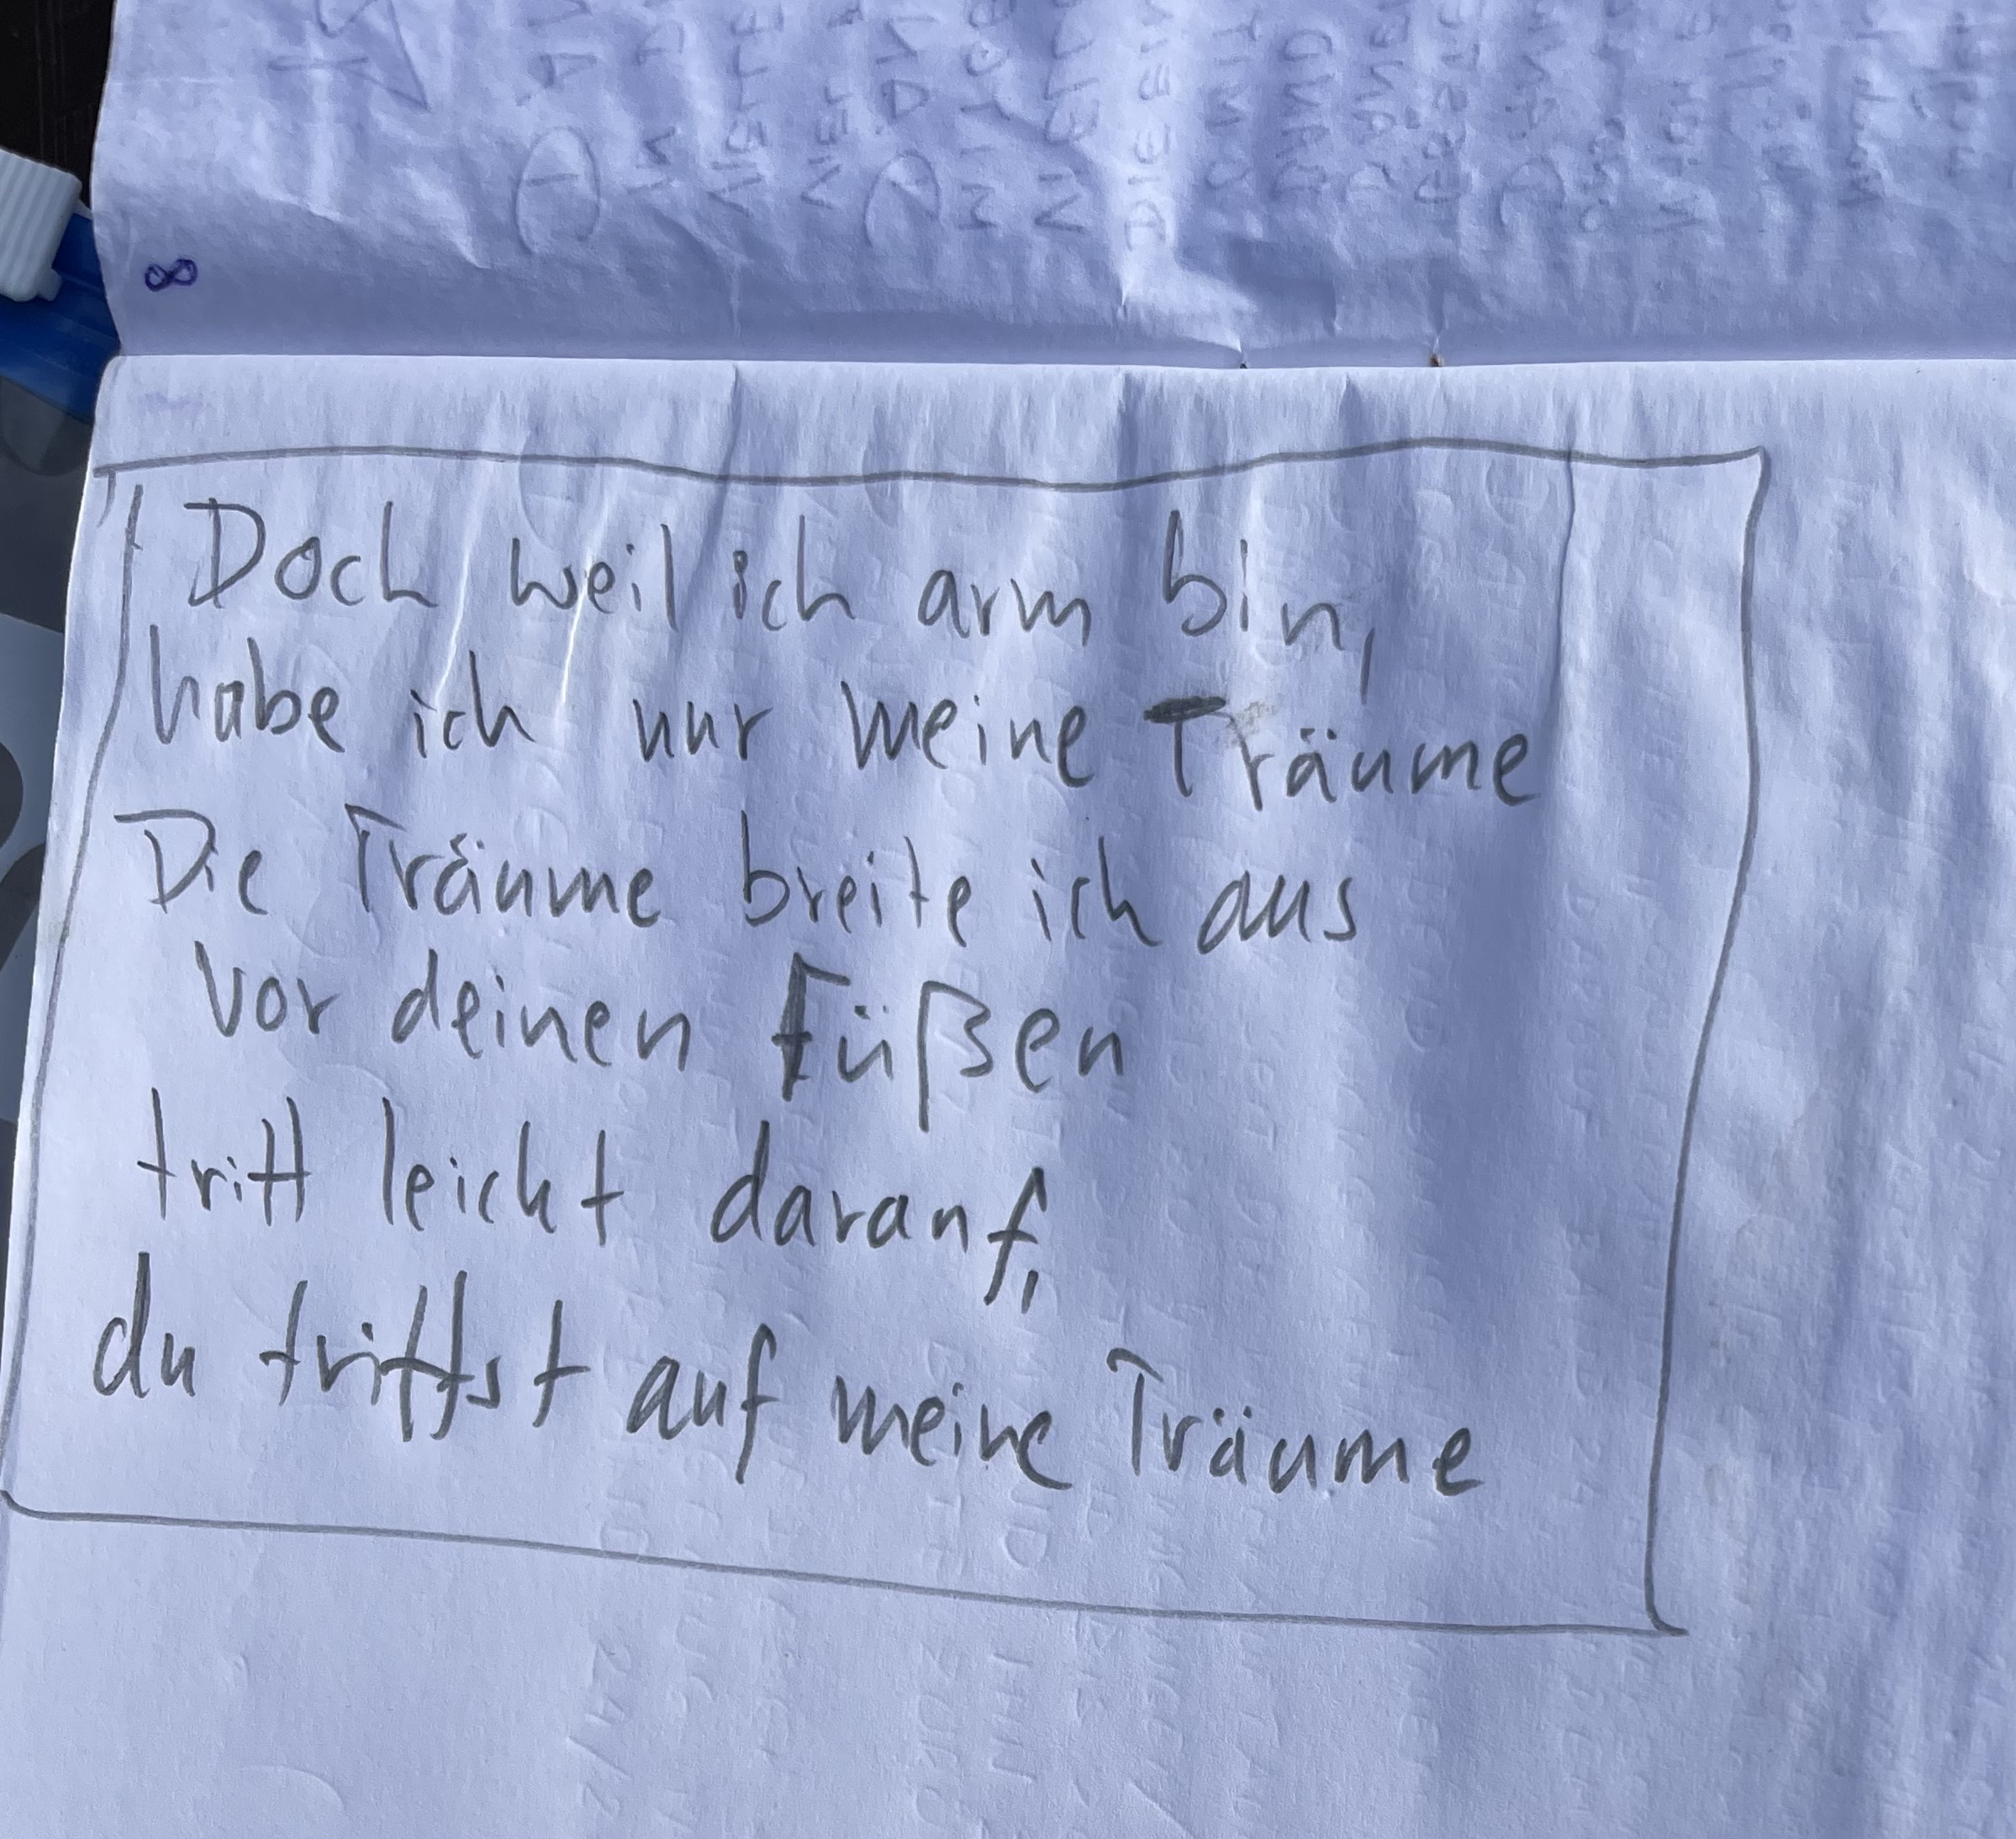 Doch weil ich arm bin,
habe ich nur meine Träume
Die Träume breite ich aus
vor deinen Füßen
tritt leicht darauf,
du trittst auf meine Träume